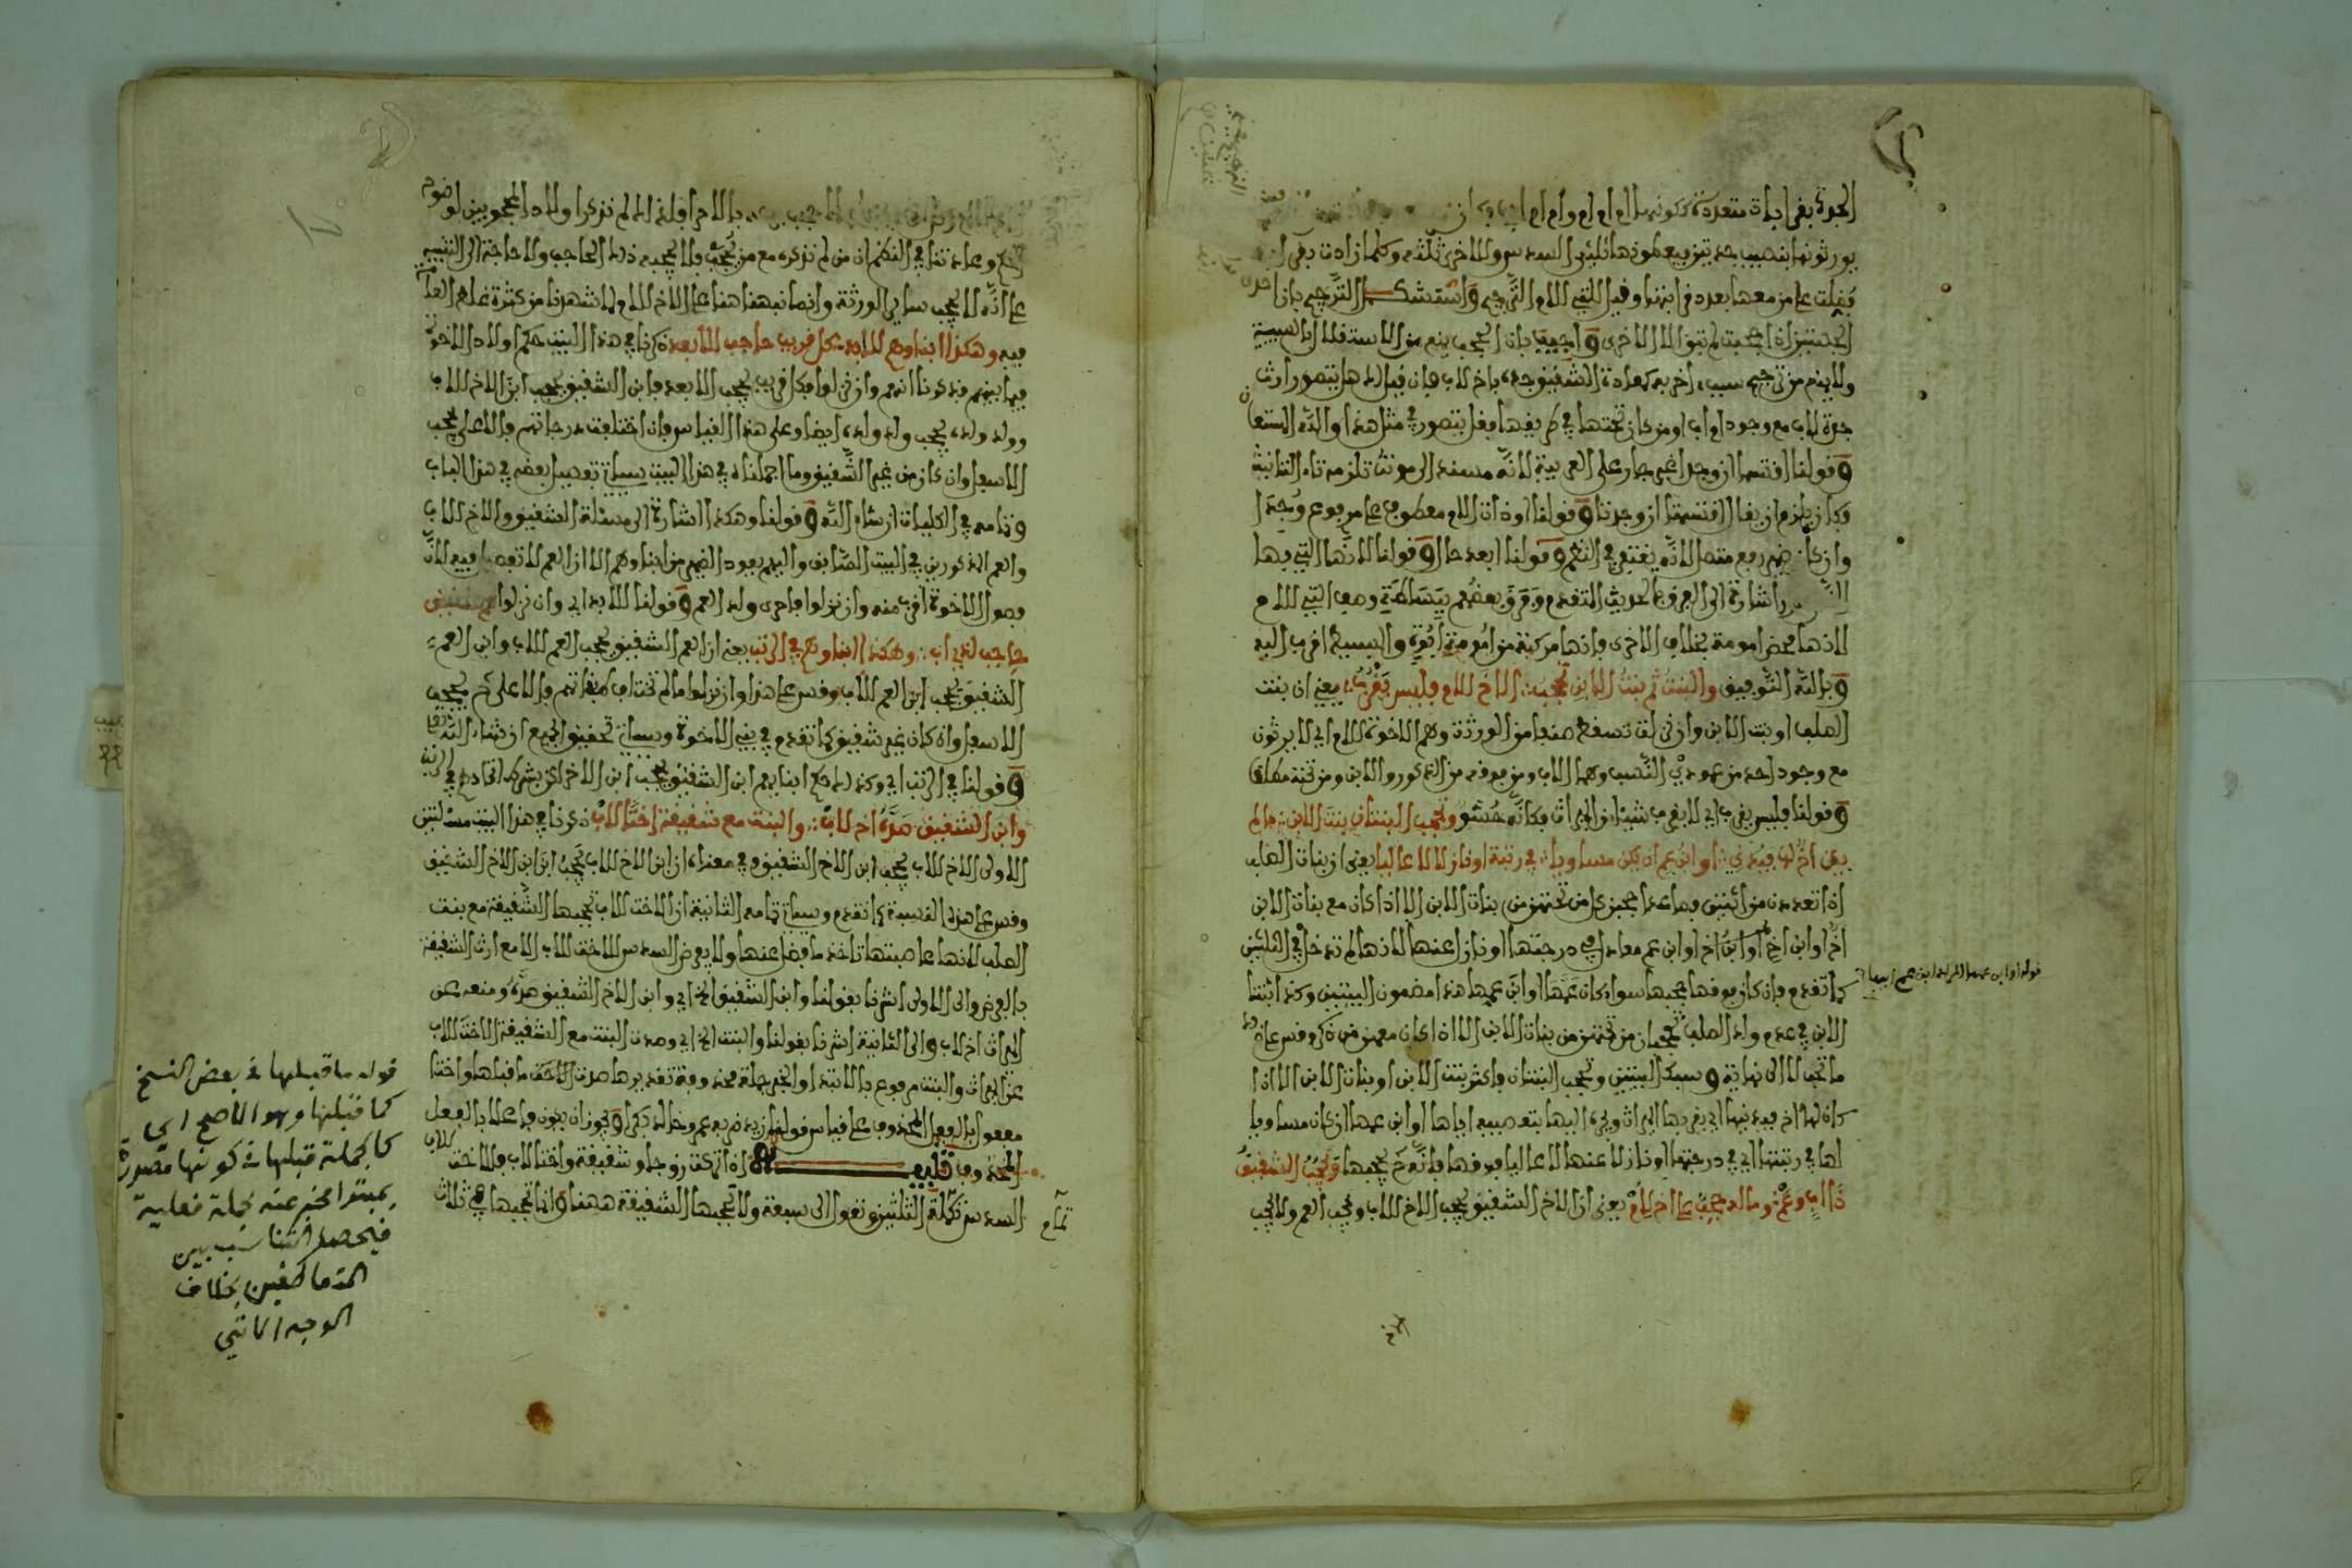 يورثونها بنصيب جدتين فيعطونها ثلثي السدس وللاخرى ثلثه وكلما زادت بقرابة
فضلت على من معها بعدد قرابتها وقيل للتي للام الترجيح واستشكل الترجيح بان احدى
الجهتين اذا حجبت لم تبق الا الاخرى واجيب بان الحجب ينع من الاستقلال بالسببية
ولا يمنع من ترجيح سبب اخر به كمعادة الشقيق جده باخ لاب فان قيل هل يتصور ارث
جدة لاب مع وجود اب او من كان تحتها في طريقها فقل يتصور في مثل هذا والله المستعان
وقولنا اقتسما ان وجدا غير جار على العربية لانه مسند الى مونث تلزمه تاء التانيث
فكان يلزم ان يقال اقتسمتا ان وجدتا وقولنا او ذات الام معطوف على مرفوع وجدا
وان كان ضمير رفع متصل لانه يغتفر في النظم وقولنا ابعد حال وقولنا لانها التي فيها
اشارة الى الفرق بالحديث المتقدم وفرق بعضهم ببساطة وصف التي للام
لانها محض امومة بخلاف الاخرى فانها مركبة من امومة ابوة والبسيط اقرب اليه
وبالله التوفيق والبنت ثم بنت الابن تحجب الاخ للام فليس يقرب يعني ان بنت
الصلب او بنت الابن وان نزلت تسقط صنفا من الورثة وهم الاخوة للام اي لا يرثون
مع وجود احد من عمودي النسب وهما الاب ومن فوقه من الذكور والابن ومن تحته مطلقا
وقولنا فليس يقرب اي لا يقرب شيئا من الميراث فكانه حشو وتحجب البنتان بنت الابن ما لم
يكن اخ لها فيدني او ابن عم ان يكن مساويا في رتبة او نازلا لا عاليا يعني ان بنات الصلب
اذا تعددن من اثنتين فصاعدا حجبن كل من تحتهن من بنات الابن الا اذا كان مع بنات الابن
اخ او ابن اخ او ابن اخ او ابن عم معادل في درجتها او نازل عنها لانها لم تدخل في الثلثين
كما تقدم فان كان فوقها يحجبها سواء كان عمها او ابن عمها هذا مضمون البيتين وكذا ابنتا
الابن في عدم ولد الصلب تحجبان من تحتهن من بنات الابن الا اذا كان معهن من ذكر وقس على هذا
ما تحب الى نهاية وسبك البيتين وتحجب البنتان فاكثر بنت الابن او بنات الابن الا اذا
كان لها اخ فيدنيها اي يقربها الميراث ويجره اليها بتعصيبه اياها او ابن عمها ان كان مساويا
لها في رتبتها اي في درجتها او نازلا عنها لا عاليا فوقها فانه يحجبها ويحجب الشقيق
ذا اب وعم وما له حجب على اخ لام يعني ان الاخ الشقيق يحجب الاخ للاب ويحجب العم ولا يحجب
قوله او ابن عمها
وعادتنا في النظم ان من لم نذكره مع من يحجب فلا يحجبه ذلك الحاجب ولا حاجة الى التنبيه
على انه لا يحجب سائر الورثة وانما نبهنا هنا على الاخ للام لما شهرنا من كثرة غلط العامة
فيه وهكذا ابناوهم للابد كل قريب حاجب للابعد ذكرنا في هذا البيت حكم اولاد الاخوة
فيما بينهم فذكرنا انهم وان نزلوا فكل قريب يحجب الابعد فابن الشقيق يحجب ابن الاخ للاب
وولد ولده يحجب ولد ولده ايضا وعلى هذا القياس فان اختلفت درجاتهم فالاعلى يحجب
الاسفل وان كان من غير الشقيق وما اجملناه في هذا البيت سياتي تفصيل بعضه في هذا الباب
وتمامه في الكليات ان شاء الله وقولنا وهكذا اشارة الى مسئلة الشقيق والاخ للاب
والعم المذكورين في البيت السابق واليهم يعود الضمير من ابناوهم الا ان العم لا تفصيل فيه لان
فصل الاخوة اقرب منه وان نزلوا فاحرى ولد العم وقولنا للابد اي وان نزلوا عم شقيق
حاجب لذي اب وهكذا ابناوهم في الرتب يعني ان العم الشقيق يحجب العم للاب وابن العم
الشقيق يحجب ابن العم للاب وقس على هذا وان نزلوا ما لم تختلف طبقاتهم فالاعلى يحجب
الاسفل ولو كان غير شقيق كما تقدم في بني الاخوة وسياتي تحقيق الجميع ان شاء الله تعالى
وقولنا في الرتب اي وكذلك حكم ابنائهم ابن الشقيق يحجب ابن الاخر لكن بشرط اتحادهم في الرتب
وابن الشقيق صده اخ لاب والبنت مع شقيقة اختا للاب ذكرنا في هذا البيت مسئلتين
الاولى الاخ للاب يحجب ابن الاخ الشقيق وفي معناه ان ابن الاخ للاب يحجب ابن ابن الاخ الشقيق
وقس على هذه النسبة كما تقدم وسياتي تمامه الثانية ان الاخت للاب تحجبها الشقيقة مع بنت
الصلب لانها عاصبتها تاخذ ما فضل عنها ولا يفرض السدس للاخت للاب الا مع ارث الشقيقة
بالفرض والى الاولى اشرنا بقولنا وابن الشقيق الخ اي وابن الاخ الشقيق صده ومنعه عن
الميراث اخ لاب والى الثانية اشرنا بقولنا والبنت الخ اي وصدت البنت مع الشقيقة الاخت للاب
عن الميراث والبنت مرفوع بالابتداء والخبر جملة محذوفة تقديرها صدت الاخت ما قبلها واختا
مفعول بالفعل المحذوف على قياس قولنا زيد ضربه عمرو خالد بكرا ويجوز ان يكون فاعلا بالفعل
المحذوف تنبيه اذا تركت زوجا وشقيقة واختا لاب فللاخت للاب
السدس تكملة الثلثين وتعول الى سبعة ولا تحجبها الشقيقة ههنا وانما تحجبها في ثلاث
تمام
قوله ما قبلها في بعض النسخ
كما قبلها وهو الاصح اي
كالجملة قبلها في كونها مصدرة
بمبتدا مخبر عنه بجملة فعلية
فيحصل التناسب بين
المتعاطفين بخلاف
الوجه الاتي